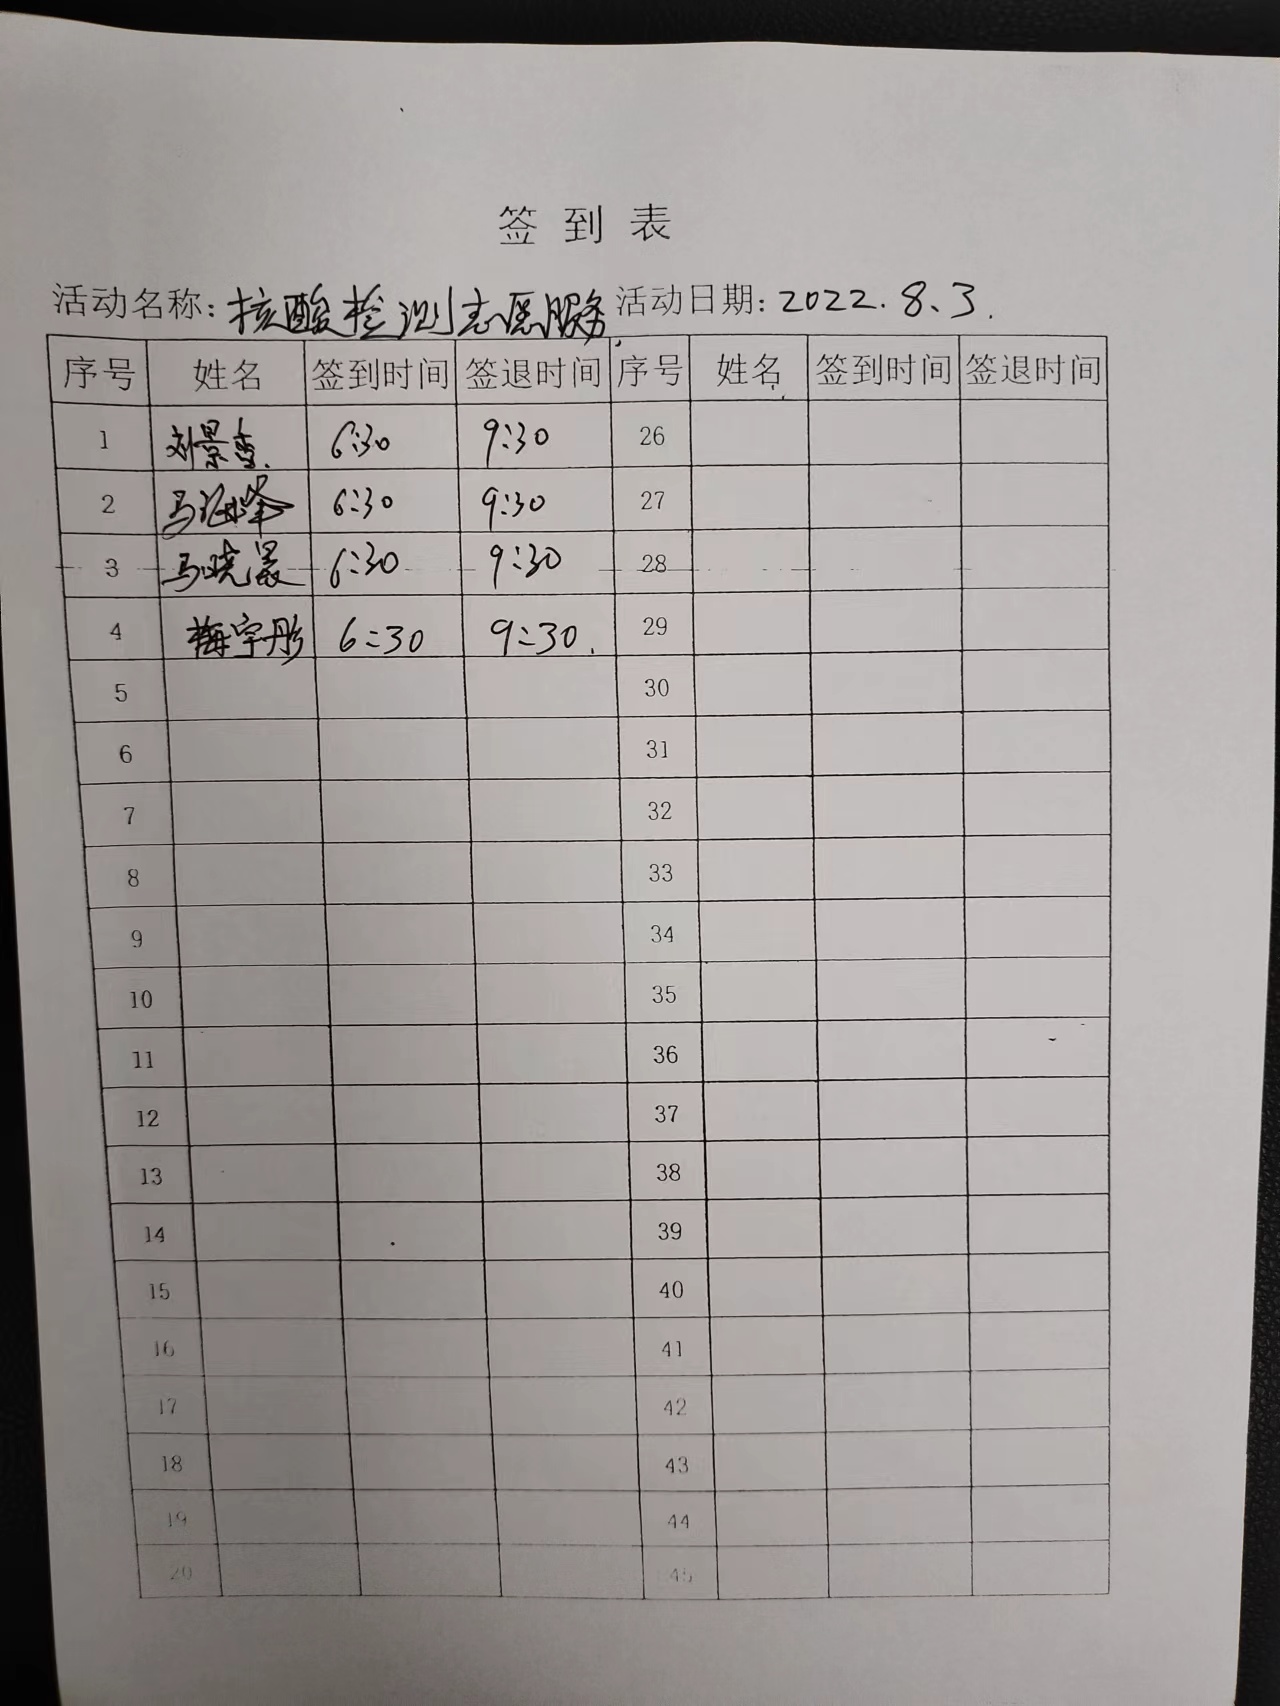 签到表
活动名称：核酸检测志愿服务 活动日期：2022.8.3.
序号 姓名 签到时间 签退时间 序号 姓名 签到时间 签退时间
1 刘景 6:30 9:30 26
2 马海峰 6:30 9:30 27
3 马晓晨 6:30 9:30 28
4 梅宇彤 6:30 9:30. 29
5 30
6 31
7 32
8 33
9 34
10 35
11 36
12 37
13 38
14 39
15 40
16 41
17 42
18 43
19 44
20 45